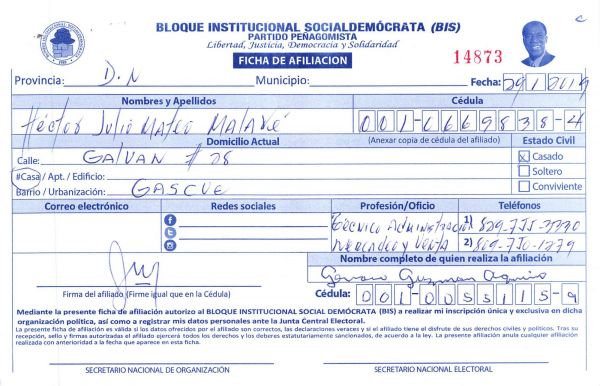 BLOQUE INSTITUCIONAL SOCIALDEMÓCRATA (BIS)
PARTIDO PEÑAGOMISTA
Libertad, Justicia, Democracia y Solidaridad
FICHA DE AFILIACION
14873
Provincia: D.N Municipio: Fecha: 29/1/2019
Nombres y Apellidos Cédula
Héctor Julio Mateo Malavé 001-0669838-4
Domicilio Actual (Anexar copia de cédula del afiliado) Estado Civil
Calle: GALVAN # 28 X Casado
#Casa / Apt. / Edificio: Soltero
Barrio / Urbanización: GASCUE Conviviente
Correo electrónico Redes sociales Profesión/Oficio Teléfonos
Técnico Administración 1) 829-755-3330
Mercadeo y Venta 2) 809-710-1279
Nombre completo de quien realiza la afiliación
Genaro Guzman Aquino
Firma del afiliado (Firme igual que en la Cédula) Cédula: 001-0053115-9
Mediante la presente ficha de afiliación autorizo al BLOQUE INSTITUCIONAL SOCIAL DEMÓCRATA (BIS) a realizar mi inscripción única y exclusiva en dicha
organización política, así como a registrar mis datos personales ante la Junta Central Electoral.
La presente ficha de afiliación es válida si los datos ofrecidos por el afiliado son correctos, las declaraciones veraces y si el afiliado tiene el disfrute de sus derechos civiles y políticos. Tras su
recepción, sello y firmas autorizadas el afiliado ejercerá todos los derechos y los deberes estatutariamente sancionados, de acuerdo a la ley. La presente afiliación anula cualquier afiliación
realizada con anterioridad a la fecha que aparece en esta ficha.
SECRETARIO NACIONAL DE ORGANIZACIÓN SECRETARIO NACIONAL ELECTORAL